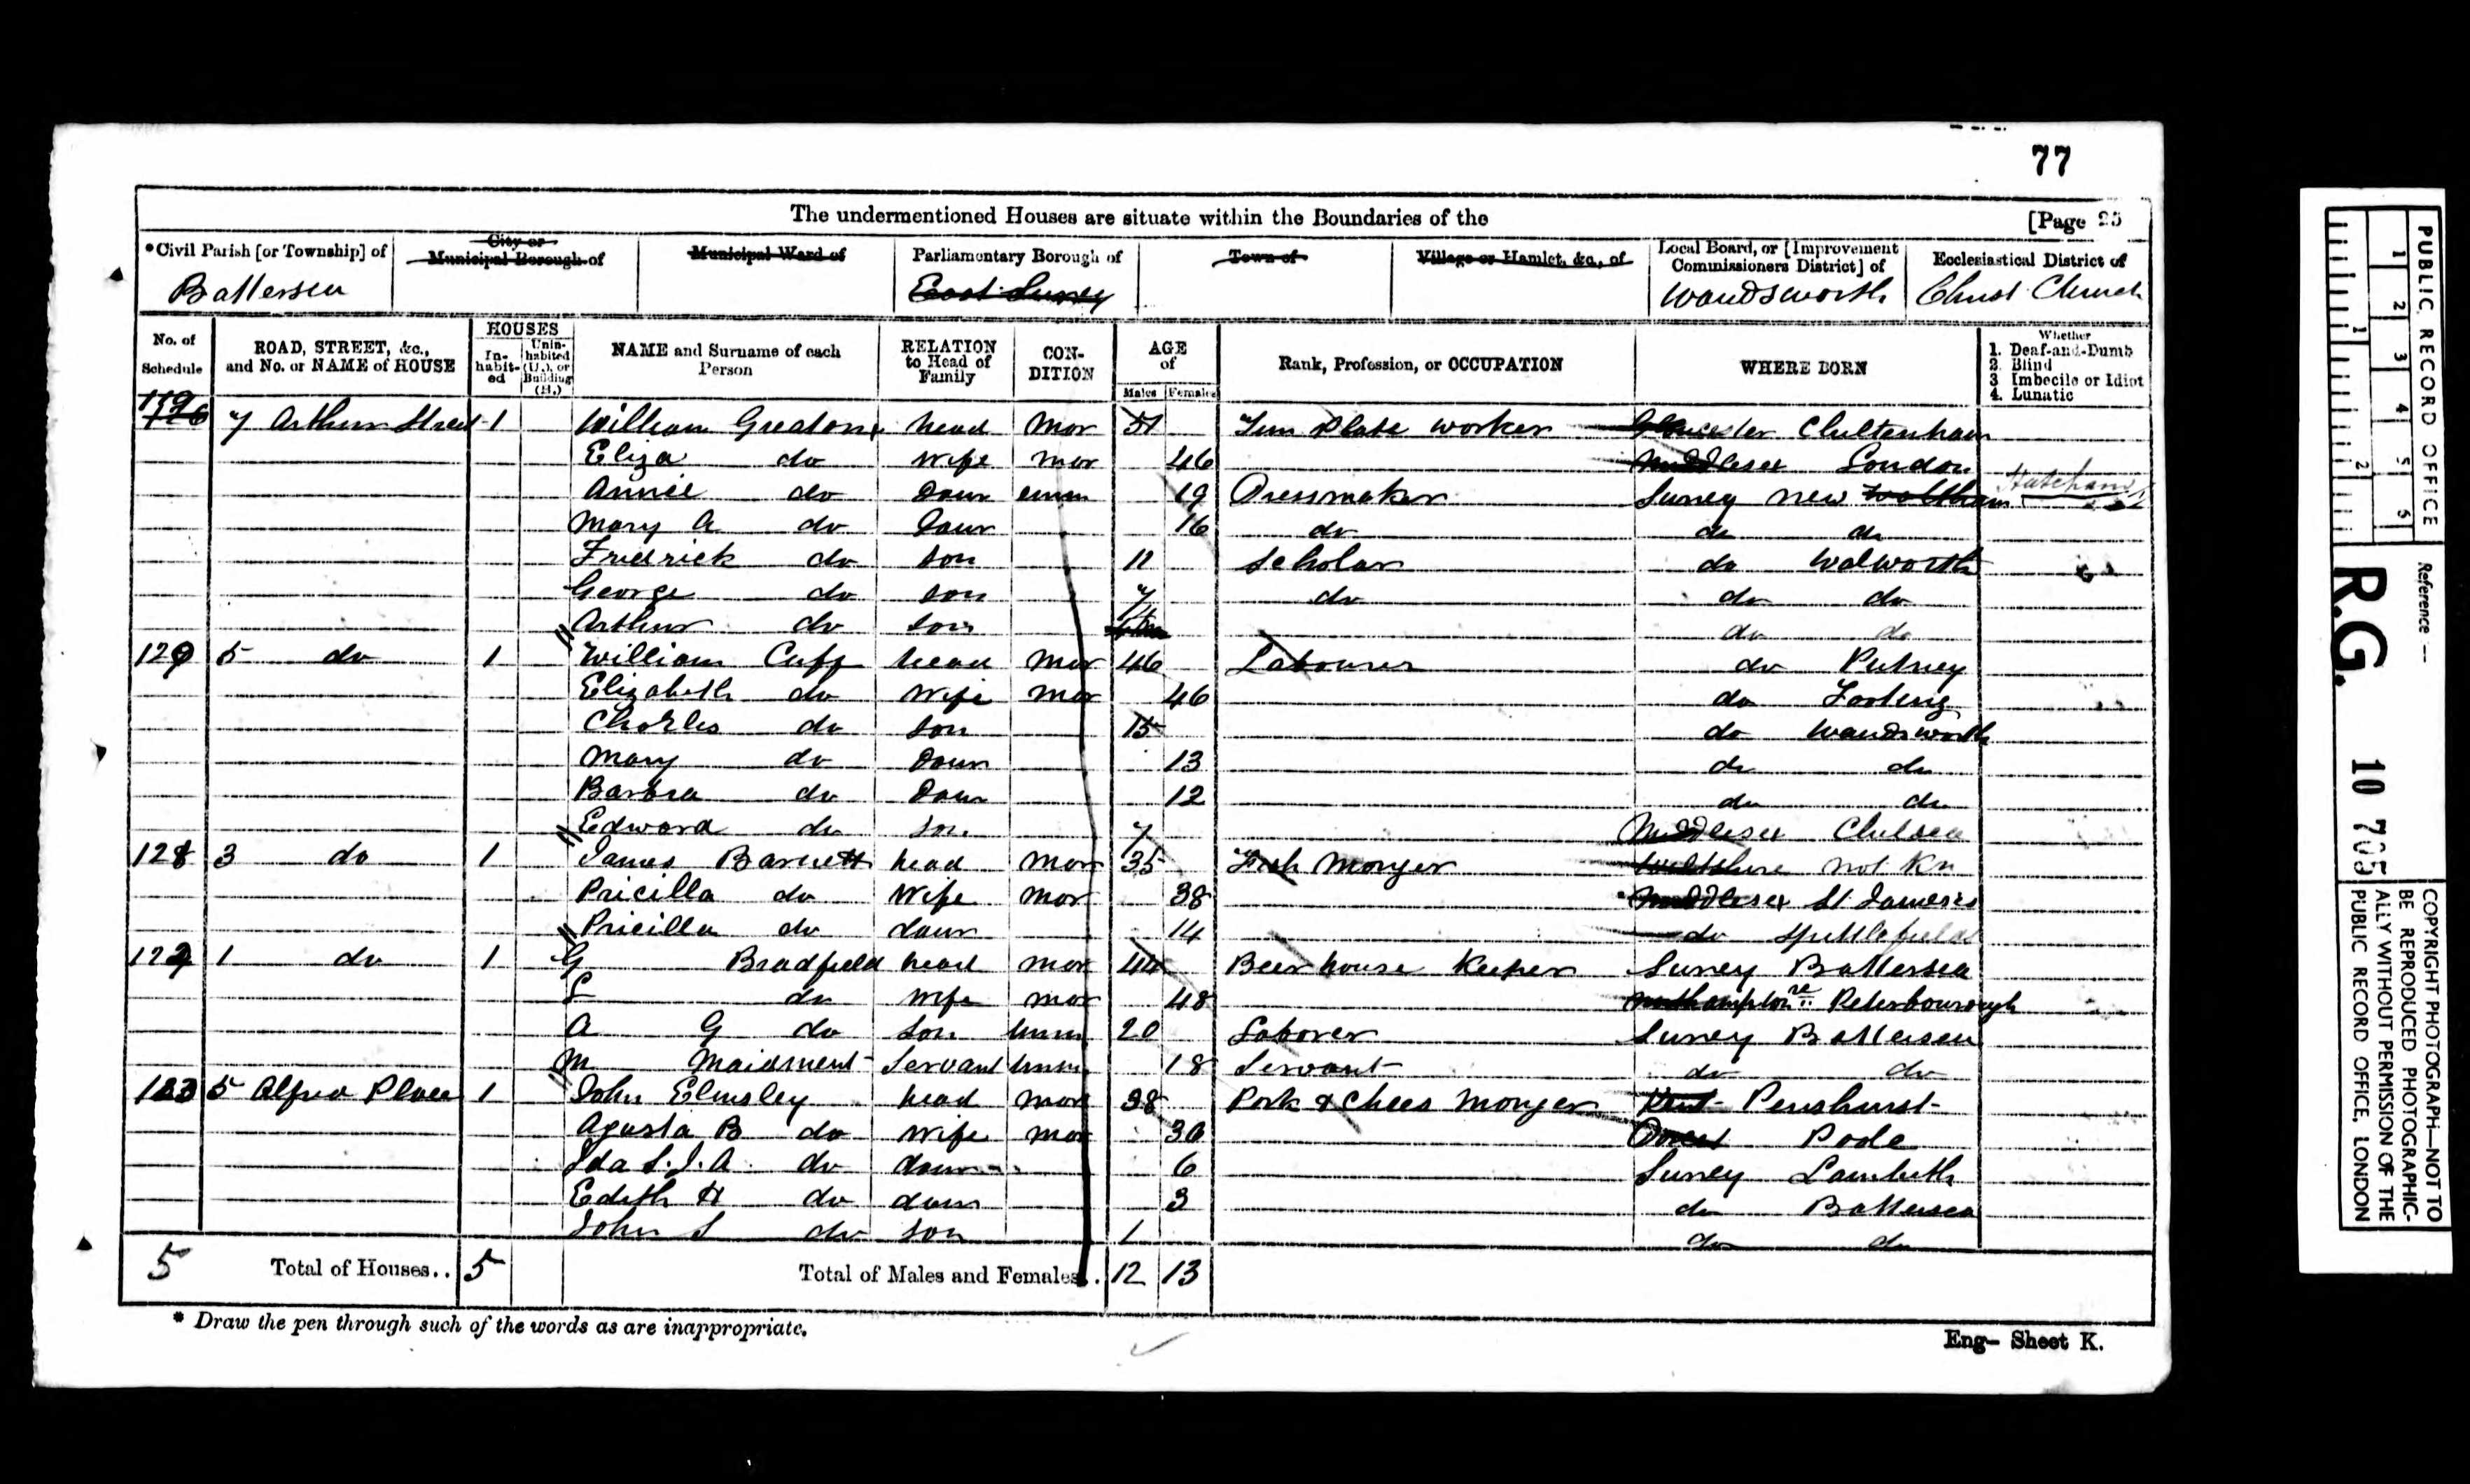 77
The undermentioned Houses are situate within the Boundaries of the [Page 25
*Civil Parish [or Township] of
City or Municipal Borough of
Municipal Ward of
Parliamentary Borough of
Town of
Village or Hamlet, &c., of
Local Board, or [Improvement Commissioners District] of
Ecclesiastical District of
Battersea East Surrey Wandsworth Christ Church
No. of Schedule
ROAD, STREET, &c., and No. or NAME of HOUSE
HOUSES
In-habit-ed
Unin-habited (U.), or Building (B.)
NAME and Surname of each Person
RELATION to Head of Family
CON-DITION
AGE of
Males Females
Rank, Profession, or OCCUPATION
WHERE BORN
Whether
1. Deaf-and-Dumb
2. Blind
3 Imbecile or Idiot
4. Lunatic
7 Arthur Street 1 William head Mar 51 Plate worker Gloucester Cheltenham
Eliza do wife mar 46 Middlesex London
Annie do Daur unm 19 Dressmaker Surrey new Hatcham
Mary A do Daur 16 do do do
Fredrick do son 11 scholar do Walworth
George do son 7 do do do
Arthur do son do do
5 do 1 William Cuff head Mar 46 Labourer do Putney
Elizabeth do wife mar 46 do Tooting
Charles do son 15 do Wandsworth
Mary do Daur 13 do do
Barbra do Daur 12 do do
Edward do son 7 Middlesex Chelsea
128 3 do 1 James Barnett head mar 35 Fish Monger Wiltshire not Kn
Pricilla do Wife mar 38 Middlesex St James's
Pricilla do daur 14 do Spittlefields
1 do 1 G Bradfield head mar 44 Beer house Keeper Surrey Battersea
S do wife mar 48 Northamptonre Peterbourough
A G do son unm 20 Laborer Surrey Battersea
M Maidment Servant unm 18 Servant do do
5 Alfred Place 1 John Elmsley head mar 38 Pork & Chees Monger Kent Penshurst
Agusta B do wife mar 30 Dorset Poole
Ida S. J. A. do daur 6 Surrey Lambeth
Edith H do daur 3 do Battersea
John S do son 1 do do
5 Total of Houses.. 5 Total of Males and Females.. 12 13
* Draw the pen through such of the words as are inappropriate.
Eng— Sheet K.
PUBLIC RECORD OFFICE
1 2 3 4 5 6
1 2
Reference:—
R.G. 10 705
COPYRIGHT PHOTOGRAPH—NOT TO BE REPRODUCED PHOTOGRAPHIC-ALLY WITHOUT PERMISSION OF THE PUBLIC RECORD OFFICE, LONDON